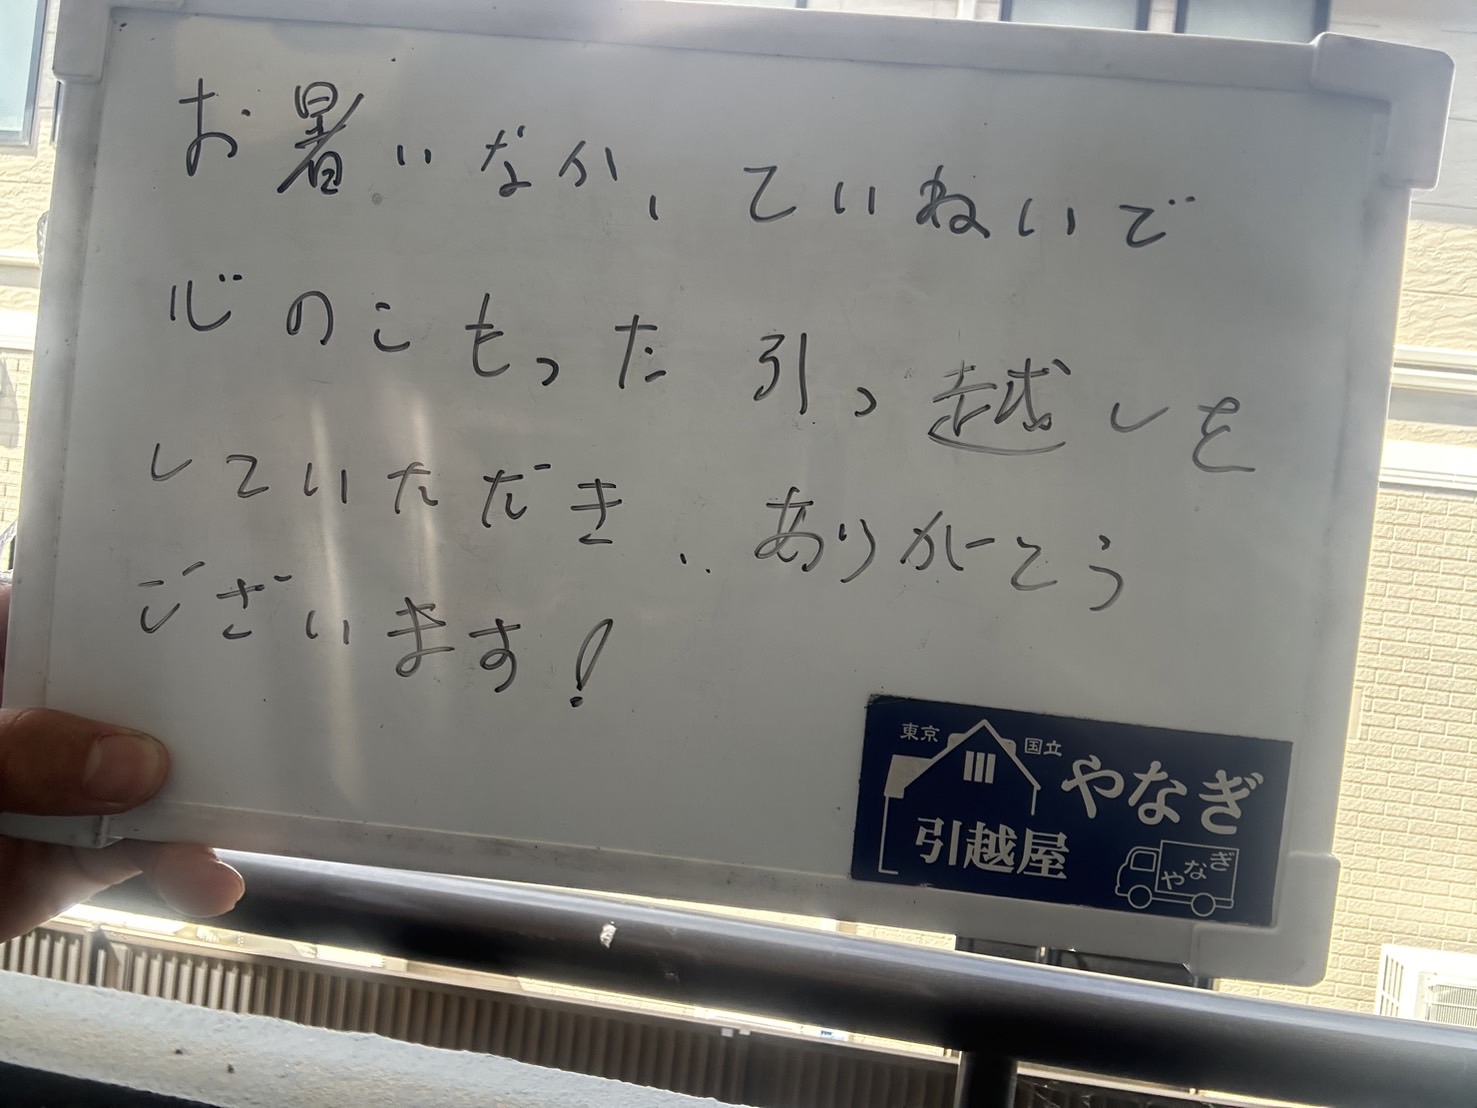 お暑いなか、ていねいで
心のこもった引っ越しを
していただき、ありがとう
ございます!
東京 国立
やなぎ
引越屋
やなぎ